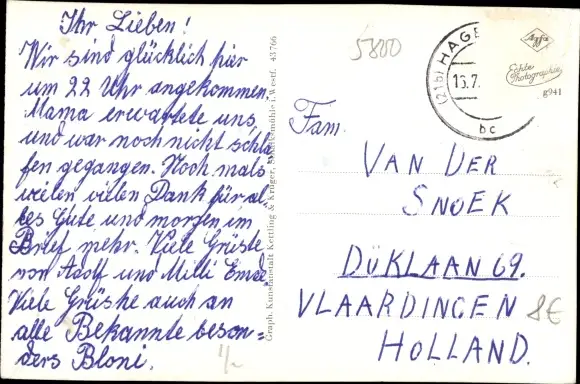 Ihr Lieben!
Wir sind glücklich hier
um 22 Uhr angekommen,
Mama erwartete uns
und war noch nicht schla
fen gegangen. Noch mals
vielen vielen Dank für al
les Gute und morgen im
Brief mehr. Viele Grüße
von Adolf und Milli
Viele Grüshe auch an
alle Bekannte beson=
ders Bloni.
Graph. Kunstanstalt Kettling & Krüger, i. Westf. 43766
5800
(21b) HAGE
15.7.
bc
Agfa
Echte
Photographie
g941
Fam.
VAN DER
SNOEK
DÜKLAAN 69.
VLAARDINGEN
HOLLAND.
8€